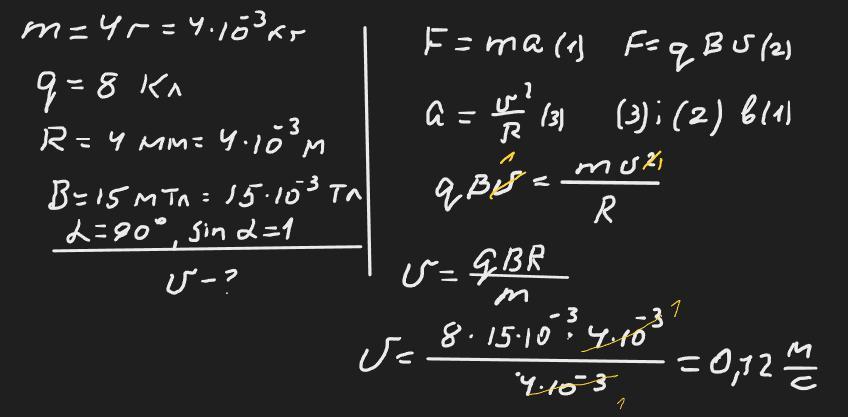 m = 4 г = 4·10⁻³ кг
q = 8 Кл
R = 4 мм = 4·10⁻³ м
B = 15 мТл = 15·10⁻³ Тл
α = 90°, sin α = 1
υ - ?
F = ma (1) F = qBυ (2)
a = υ²/R (3) (3) i (2) в (1)
qBυ = mυ²/R
υ = qBR/m
υ = 8·15·10⁻³·4·10⁻³/4·10⁻³ = 0,12 м/с